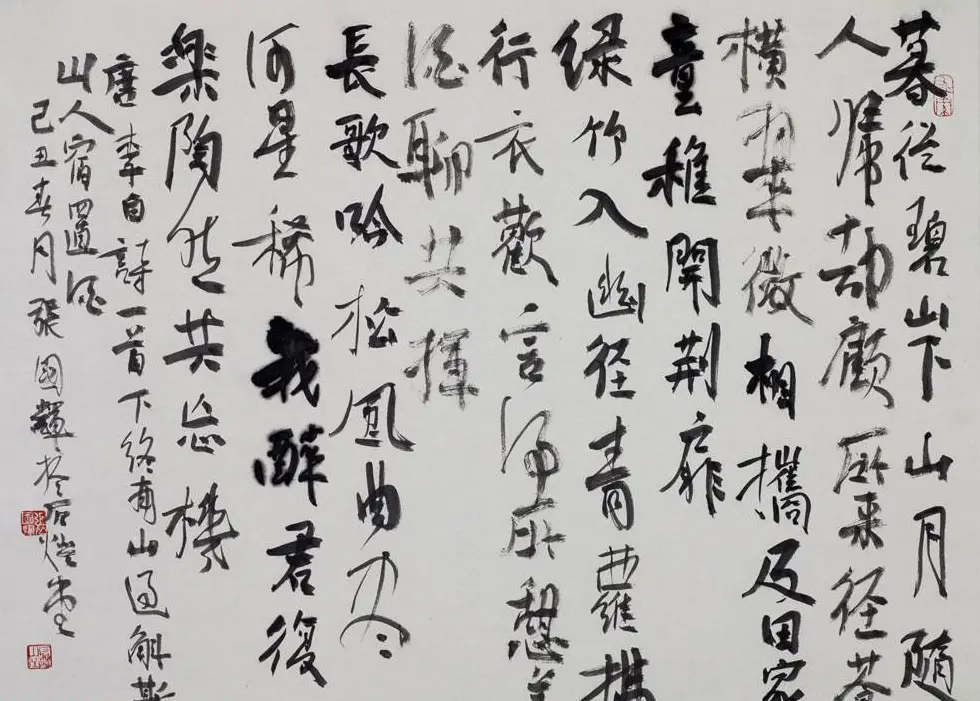 暮從碧山下山月隨
人歸却顧所来径蒼
橫翠微相攜及田家
童稚開荆扉
绿竹入幽径青蘿拂
行衣歡言得所憩美
酒聊共揮
長歌吟松風曲尽
河星稀我醉君復
樂陶然共忘機
唐李白詩一首下終南山過斛斯
山人宿置酒
己丑春月張國輝於石